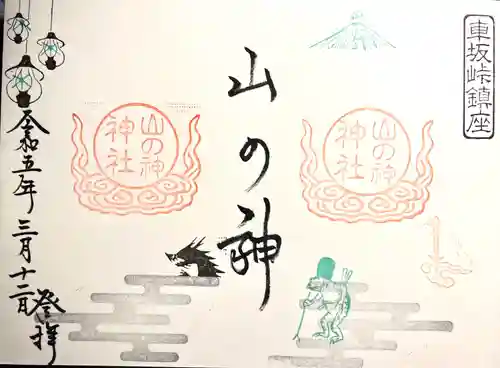 車坂峠鎮座
山の神
山の神
神社
山の神
神社
令和五年 三月十二日
登拝